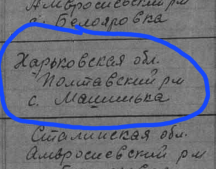 Амвросиевский р-н
с. Белояровка
Харьковская обл.
Полтавский р-н
с. Машинька
Сталинская обл.
Амвросиевский р-н